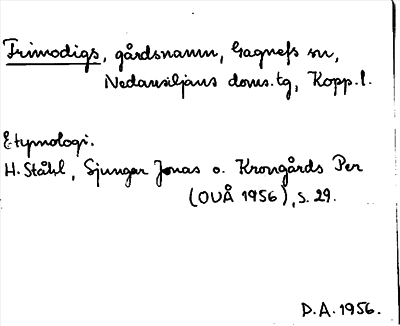 Frimodigs, gårdsnamn, Gagnefs sn,
Nedansiljans doms.tg, Kopp.l.
Etymologi.
H. Ståhl, Sjungar Jonas o. Krongårds Per
(OUÅ 1956), s. 29.
D.A. 1956.